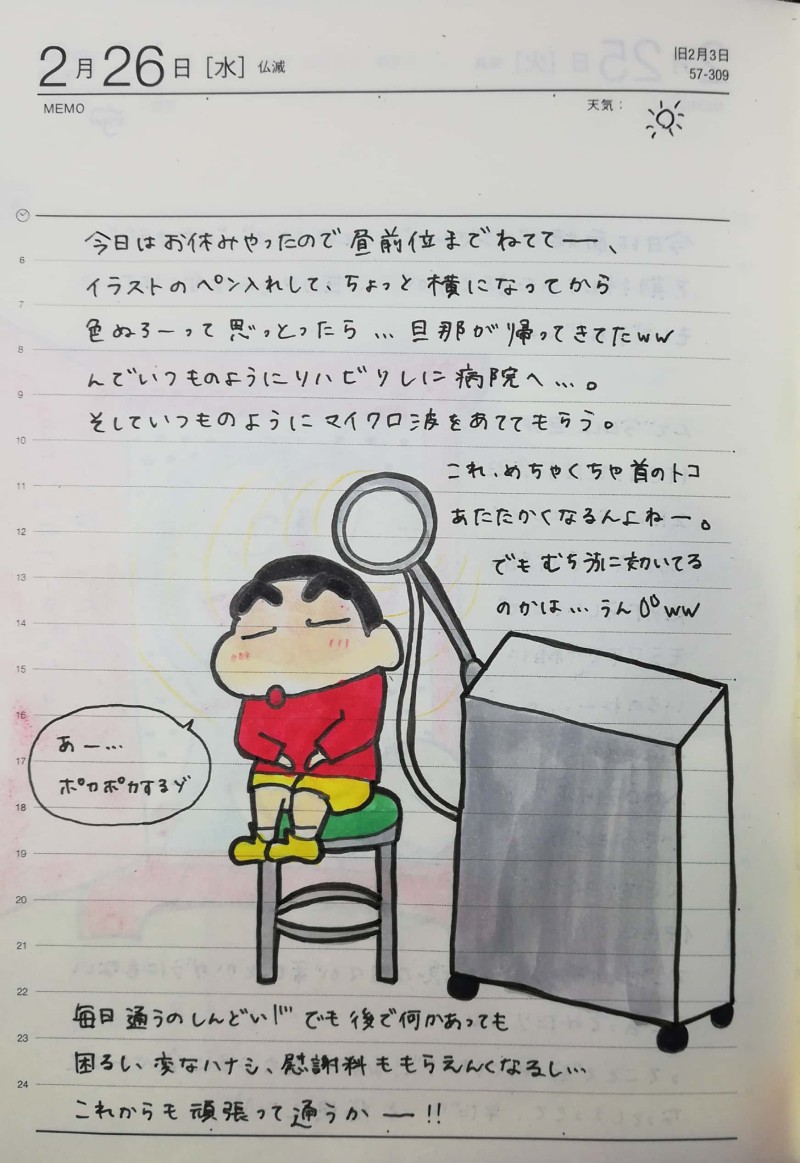 2月26日 [水] 仏滅
旧2月3日
57-309
MEMO
天気：
今日はお休みやったので昼前位までねててー、
6
イラストのペン入れして、ちょっと横になってから
7
色ぬろーって思っとったら…旦那が帰ってきてたww
8
んでいつものようにリハビリしに病院へ…。
9
そしていつものようにマイクロ波をあててもらう。
10
これ、めちゃくちゃ首のトコ
11
あたたかくなるんよねー。
12
でもむちうちに効いてる
13
のかは…うんww
14
15
16
あー…
17
ポカポカするゾ
18
19
20
21
22
毎日通うのしんどい でも後で何かあっても
23
困るし、変なハナシ、慰謝料ももらえんくなるし…
24
これからも頑張って通うかー!!